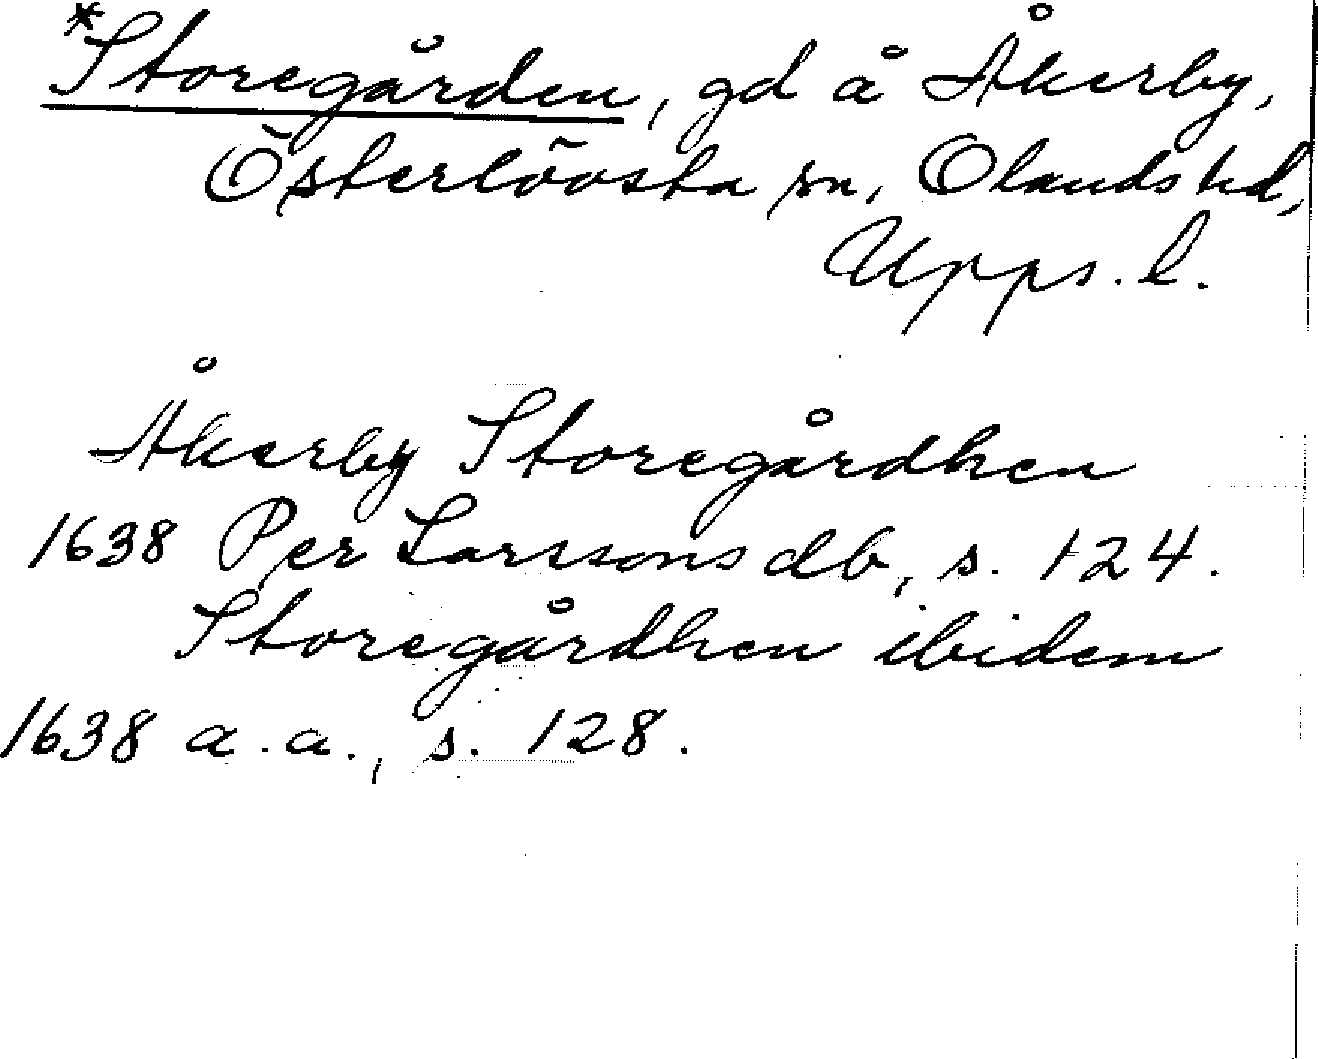 *Storegården, gd å Åkerby,
Österlövsta sn, Olandshd,
Upps. l.
Åkerby Storegårdhen
1638 Per Larssons db, s. 124.
Storegårdhen ibidem
1638 a.a., s. 128.